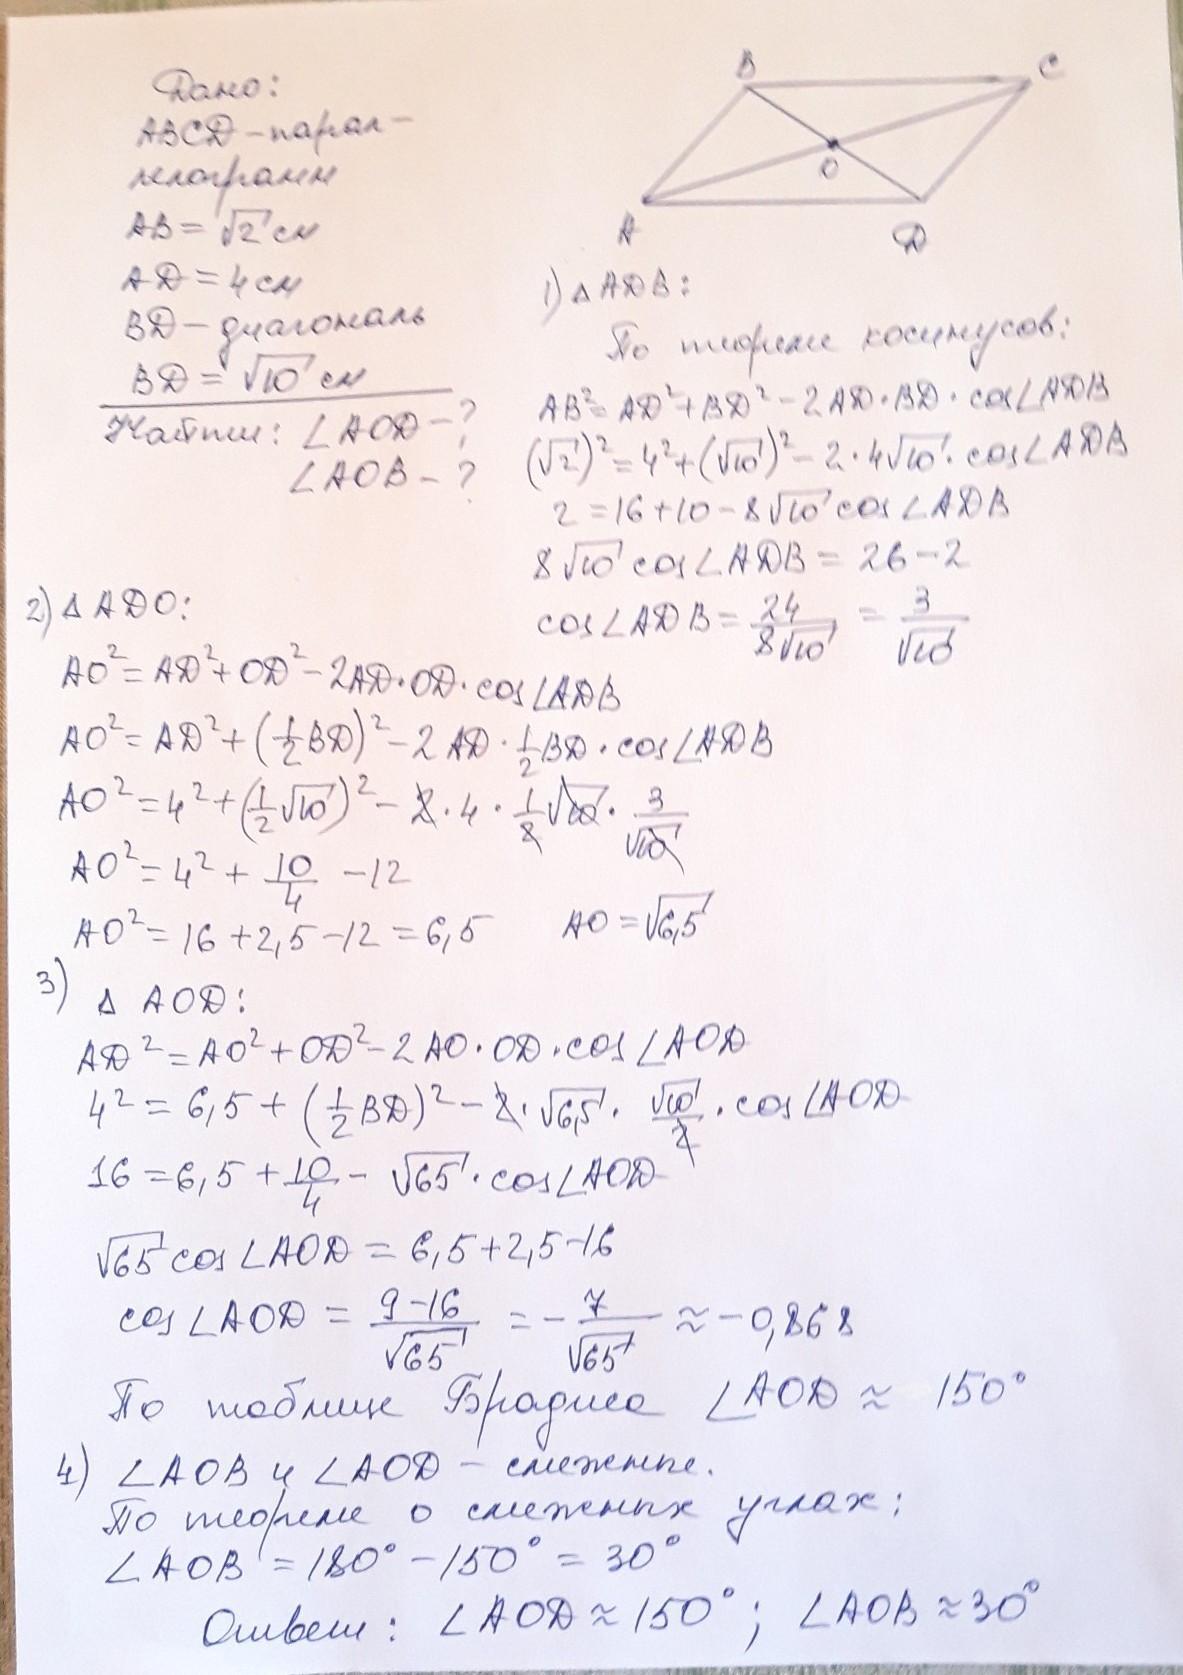 Дано:
ABCD - парал-
лелограмм
AB = √2 см
AD = 4 см
BD - диагональ
BD = √10 см
Найти: ∠AOD - ?
∠AOB - ?
B
C
O
A
D
1) △ ADB:
По теореме косинусов:
AB² = AD² + BD² - 2AD · BD · cos∠ADB
(√2)² = 4² + (√10)² - 2 · 4√10 · cos∠ADB
2 = 16 + 10 - 8√10 cos∠ADB
8√10 cos∠ADB = 26 - 2
cos∠ADB = 24/8√10 = 3/√10
2) △ ADO:
AO² = AD² + OD² - 2AD · OD · cos∠ADB
AO² = AD² + (1/2 BD)² - 2 AD · 1/2 BD · cos∠ADB
AO² = 4² + (1/2 √10)² - 2 · 4 · 1/2 √10 · 3/√10
AO² = 4² + 10/4 - 12
AO² = 16 + 2,5 - 12 = 6,5 AO = √6,5
3) △ AOD:
AD² = AO² + OD² - 2 AO · OD · cos∠AOD
4² = 6,5 + (1/2 BD)² - 2 · √6,5 · √10/2 · cos∠AOD
16 = 6,5 + 10/4 - √65 · cos∠AOD
√65 cos∠AOD = 6,5 + 2,5 - 16
cos∠AOD = 9-16/√65 = - 7/√65 ≈ -0,868
По таблице Брадиса ∠AOD ≈ 150°
4) ∠AOB и ∠AOD - смежные.
По теореме о смежных углах:
∠AOB = 180° - 150° = 30°
Ответ: ∠AOD ≈ 150°; ∠AOB ≈ 30°